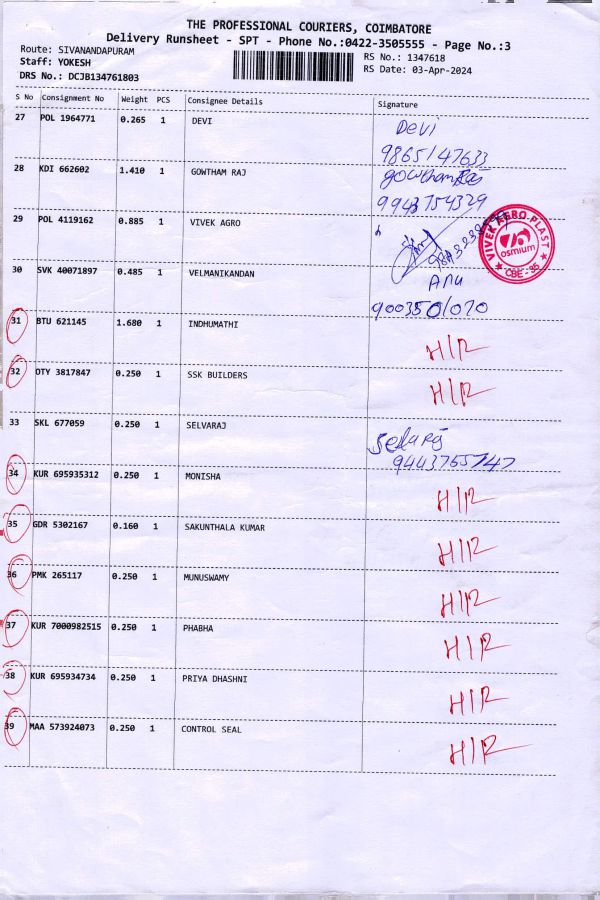 THE PROFESSIONAL COURIERS, COIMBATORE
Delivery Runsheet - SPT - Phone No.:0422-3505555 - Page No.:3
Route: SIVANANDAPURAM
Staff: YOKESH
DRS No: DCJB134761803
RS No: 1347618
RS Date: 03-Apr-2024
S No Consignment No Weight PCS Consignee Details Signature
27 POL 1964771 0.265 1 DEVI Devi
9865147633
28 KDI 662602 1.410 1 GOWTHAM RAJ gowtham Raj
9943754329
29 POL 4119162 0.885 1 VIVEK AGRO
VIVEK AERO PLAST
osmium
CBE - 35
30 SVK 40071897 0.485 1 VELMANIKANDAN Anu
9003501070
31 BTU 621145 1.680 1 INDHUMATHI H/R
32 OTY 3817847 0.250 1 SSK BUILDERS H/R
33 SKL 677059 0.250 1 SELVARAJ
9443755747
34 KUR 695935312 0.250 1 MONISHA H/R
35 GDR 5302167 0.160 1 SAKUNTHALA KUMAR H/R
36 PMK 265117 0.250 1 MUNUSWAMY H/R
37 KUR 7000982515 0.250 1 PHABHA H/R
38 KUR 695934734 0.250 1 PRIYA DHASHNI H/R
39 MAA 573924073 0.250 1 CONTROL SEAL H/R